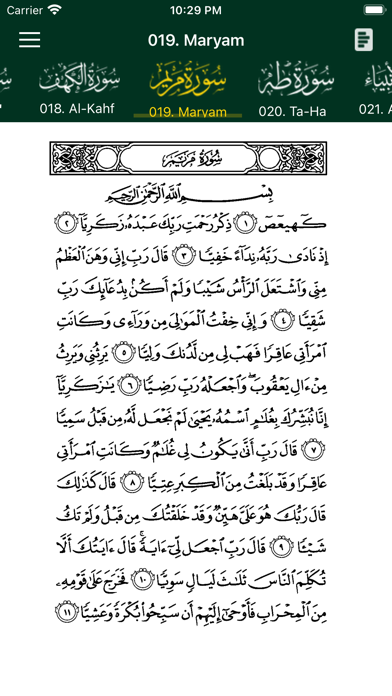 Carrier 10:29 PM
019. Maryam
سورة الكهف سورة مريم سورة طه
018. Al-Kahf 019. Maryam 020. Ta-Ha 021. A
سُورَةُ مَرْيَمَ
بِسْمِ ٱللَّهِ ٱلرَّحْمَٰنِ ٱلرَّحِيمِ
كٓهيعٓصٓ ١ ذِكْرُ رَحْمَتِ رَبِّكَ عَبْدَهُۥ زَكَرِيَّآ ٢
إِذْ نَادَىٰ رَبَّهُۥ نِدَآءً خَفِيًّا ٣ قَالَ رَبِّ إِنِّى وَهَنَ ٱلْعَظْمُ
مِنِّى وَٱشْتَعَلَ ٱلرَّأْسُ شَيْبًا وَلَمْ أَكُنۢ بِدُعَآئِكَ رَبِّ
شَقِيًّا ٤ وَإِنِّى خِفْتُ ٱلْمَوَٰلِىَ مِن وَرَآءِى وَكَانَتِ
ٱمْرَأَتِى عَاقِرًا فَهَبْ لِى مِن لَّدُنكَ وَلِيًّا ٥ يَرِثُنِى وَيَرِثُ
مِنْ ءَالِ يَعْقُوبَ ۖ وَٱجْعَلْهُ رَبِّ رَضِيًّا ٦ يَٰزَكَرِيَّآ
إِنَّا نُبَشِّرُكَ بِغُلَٰمٍ ٱسْمُهُۥ يَحْيَىٰ لَمْ نَجْعَل لَّهُۥ مِن قَبْلُ سَمِيًّا
٧ قَالَ رَبِّ أَنَّىٰ يَكُونُ لِى غُلَٰمٌ وَكَانَتِ ٱمْرَأَتِى
عَاقِرًا وَقَدْ بَلَغْتُ مِنَ ٱلْكِبَرِ عِتِيًّا ٨ قَالَ كَذَٰلِكَ
قَالَ رَبُّكَ هُوَ عَلَىَّ هَيِّنٌ وَقَدْ خَلَقْتُكَ مِن قَبْلُ وَلَمْ تَكُ
شَيْـًٔا ٩ قَالَ رَبِّ ٱجْعَل لِّىٓ ءَايَةً ۚ قَالَ ءَايَتُكَ أَلَّا
تُكَلِّمَ ٱلنَّاسَ ثَلَٰثَ لَيَالٍ سَوِيًّا ١٠ فَخَرَجَ عَلَىٰ قَوْمِهِۦ
مِنَ ٱلْمِحْرَابِ فَأَوْحَىٰٓ إِلَيْهِمْ أَن سَبِّحُوا۟ بُكْرَةً وَعَشِيًّا ١١